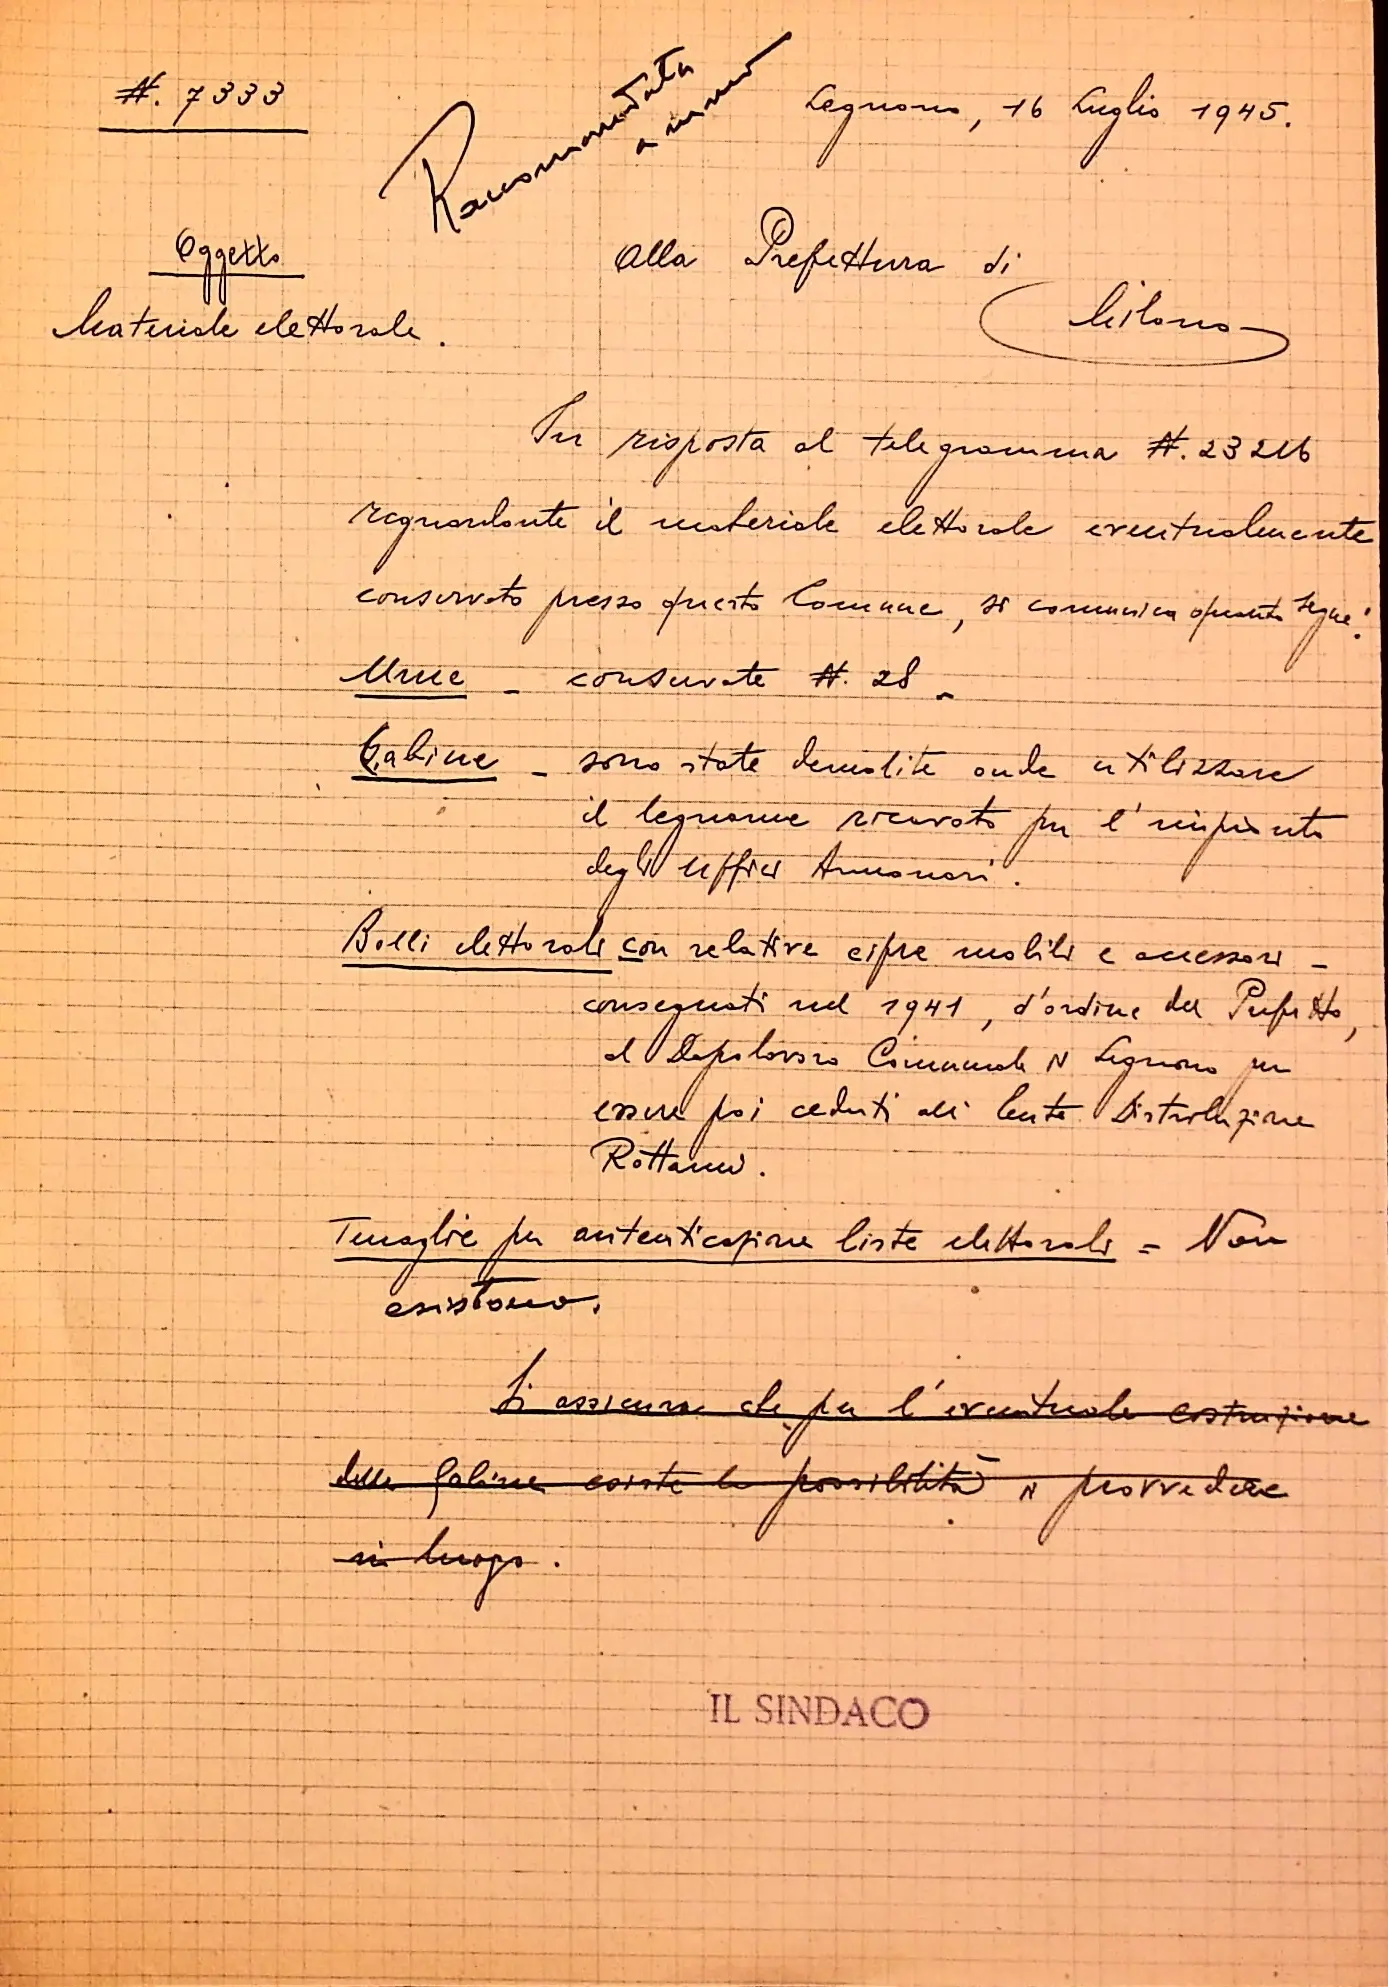 N. 7333
Raccomandata
a mano
Legnano, 16 Luglio 1945.
Oggetto
Materiale elettorale.
Alla Prefettura di
Milano
In risposta al telegramma N. 23216
riguardante il materiale elettorale eventualmente
conservato presso questo Comune, si comunica quanto segue:
Urne - conservate N. 28 -
Cabine - sono state demolite onde utilizzare
il legname ricavato per l'impianto
degli Uffici Annonari.
Bolli elettorali con relative cifre mobili e accessori -
consegnati nel 1941, d'ordine del Prefetto,
al Dopolavoro Comunale di Legnano per
essere poi ceduti all' Ente Distribuzione
Rottami.
Tenaglie per autenticazione liste elettorali = Non
esistono.
Si assicura che per l'eventuale costruzione
delle Cabine esiste la possibilità di provvedere
in luogo.
IL SINDACO